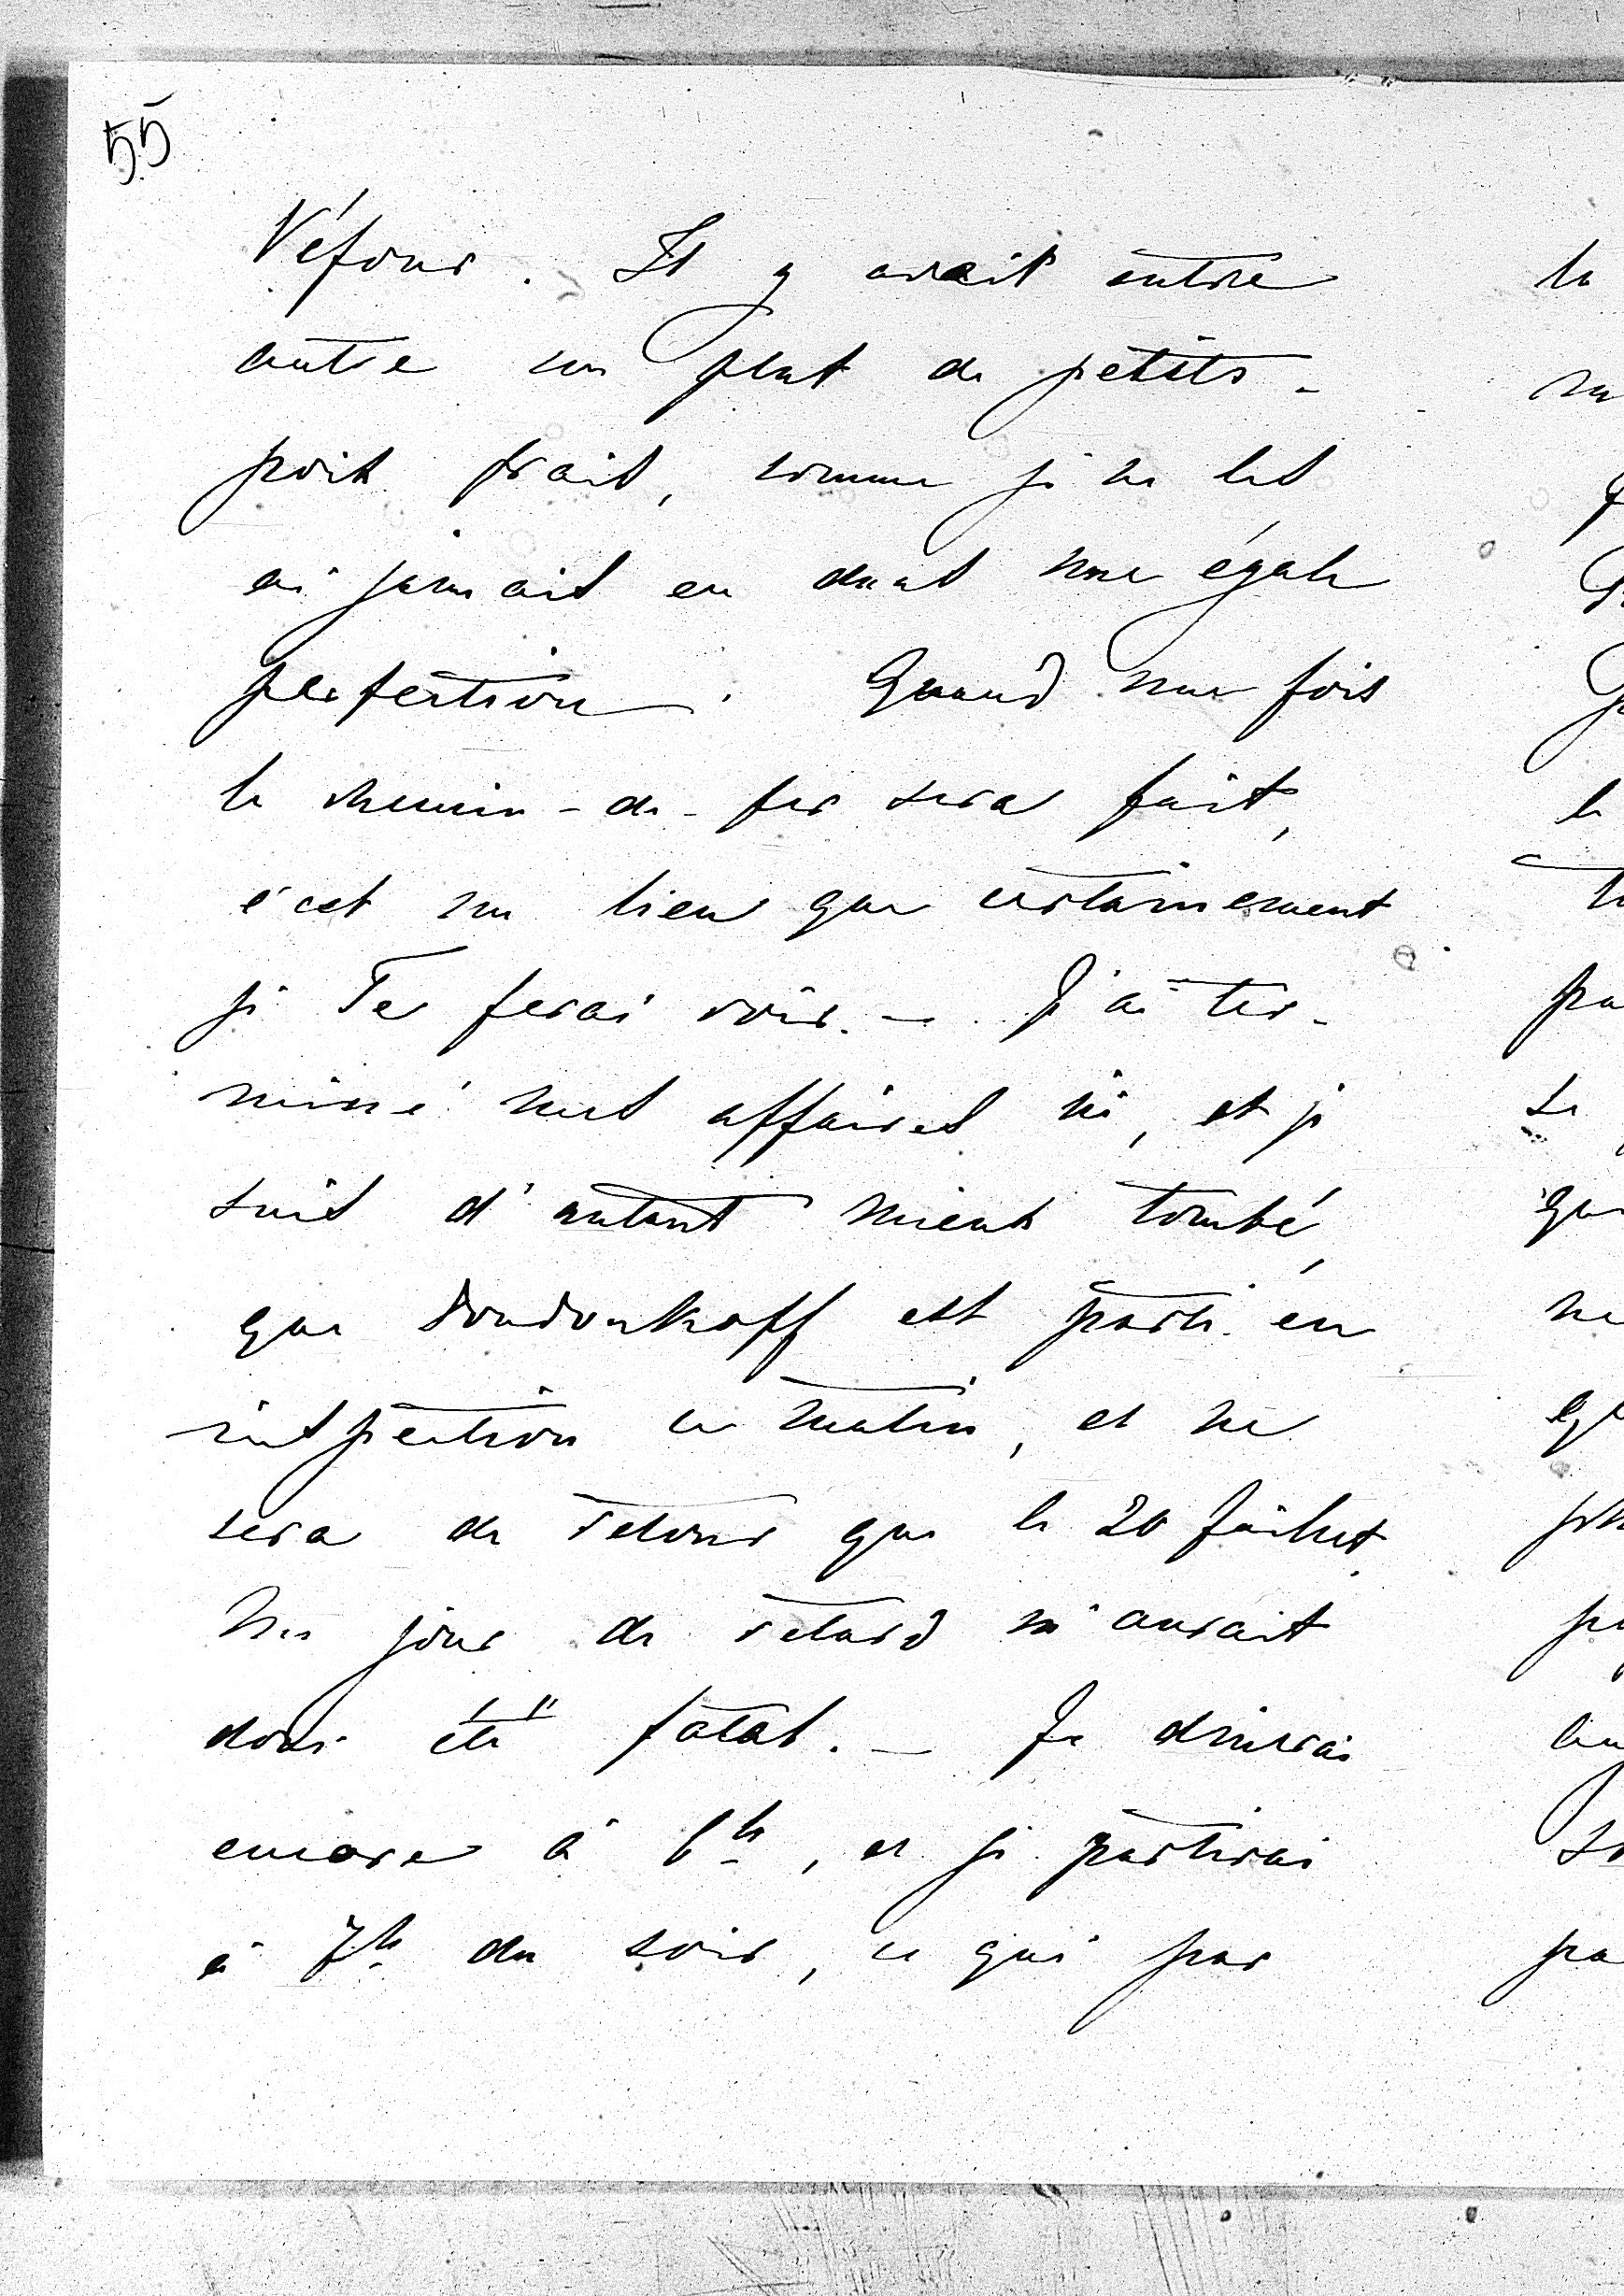 55
Véfour. Il y avait entre
autre un plat de petits-
pois frais, comme je ne les
ai jamais eu dans une égale
perfection. Quand une fois
le chemin-de-fer sera fait,
c'est un lieu que certainement
je Te ferai voir. — J'ai ter-
miné mes affaires ici, et je
suis d'autant mieux tombé,
que Dondoukoff est parti en
inspection ce matin, et ne
sera de retour que le 20 Juillet.
Un jour de retard m'aurait
donc été fatal. — Je dinerai
encore à 6h, et je partirai
à 7h du soir, ce qui par